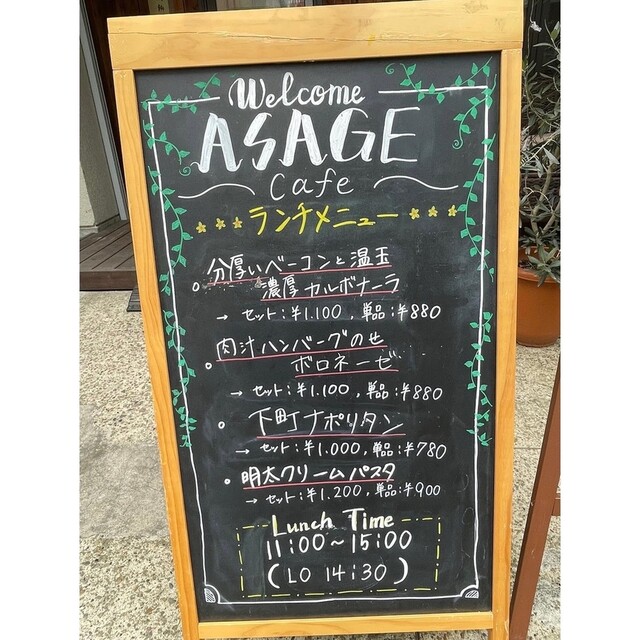 Welcome
ASAGE
Cafe
ランチメニュー
分厚いベーコンと温玉
濃厚カルボナーラ
→ セット:¥1.100, 単品:¥880
肉汁ハンバーグのせ
ボロネーゼ
→ セット:¥1.100, 単品:¥880
下町ナポリタン
→ セット:¥1.000, 単品:¥780
明太クリームパスタ
→ セット:¥1.200, 単品:¥900
Lunch Time
11:00~15:00
(LO 14:30)